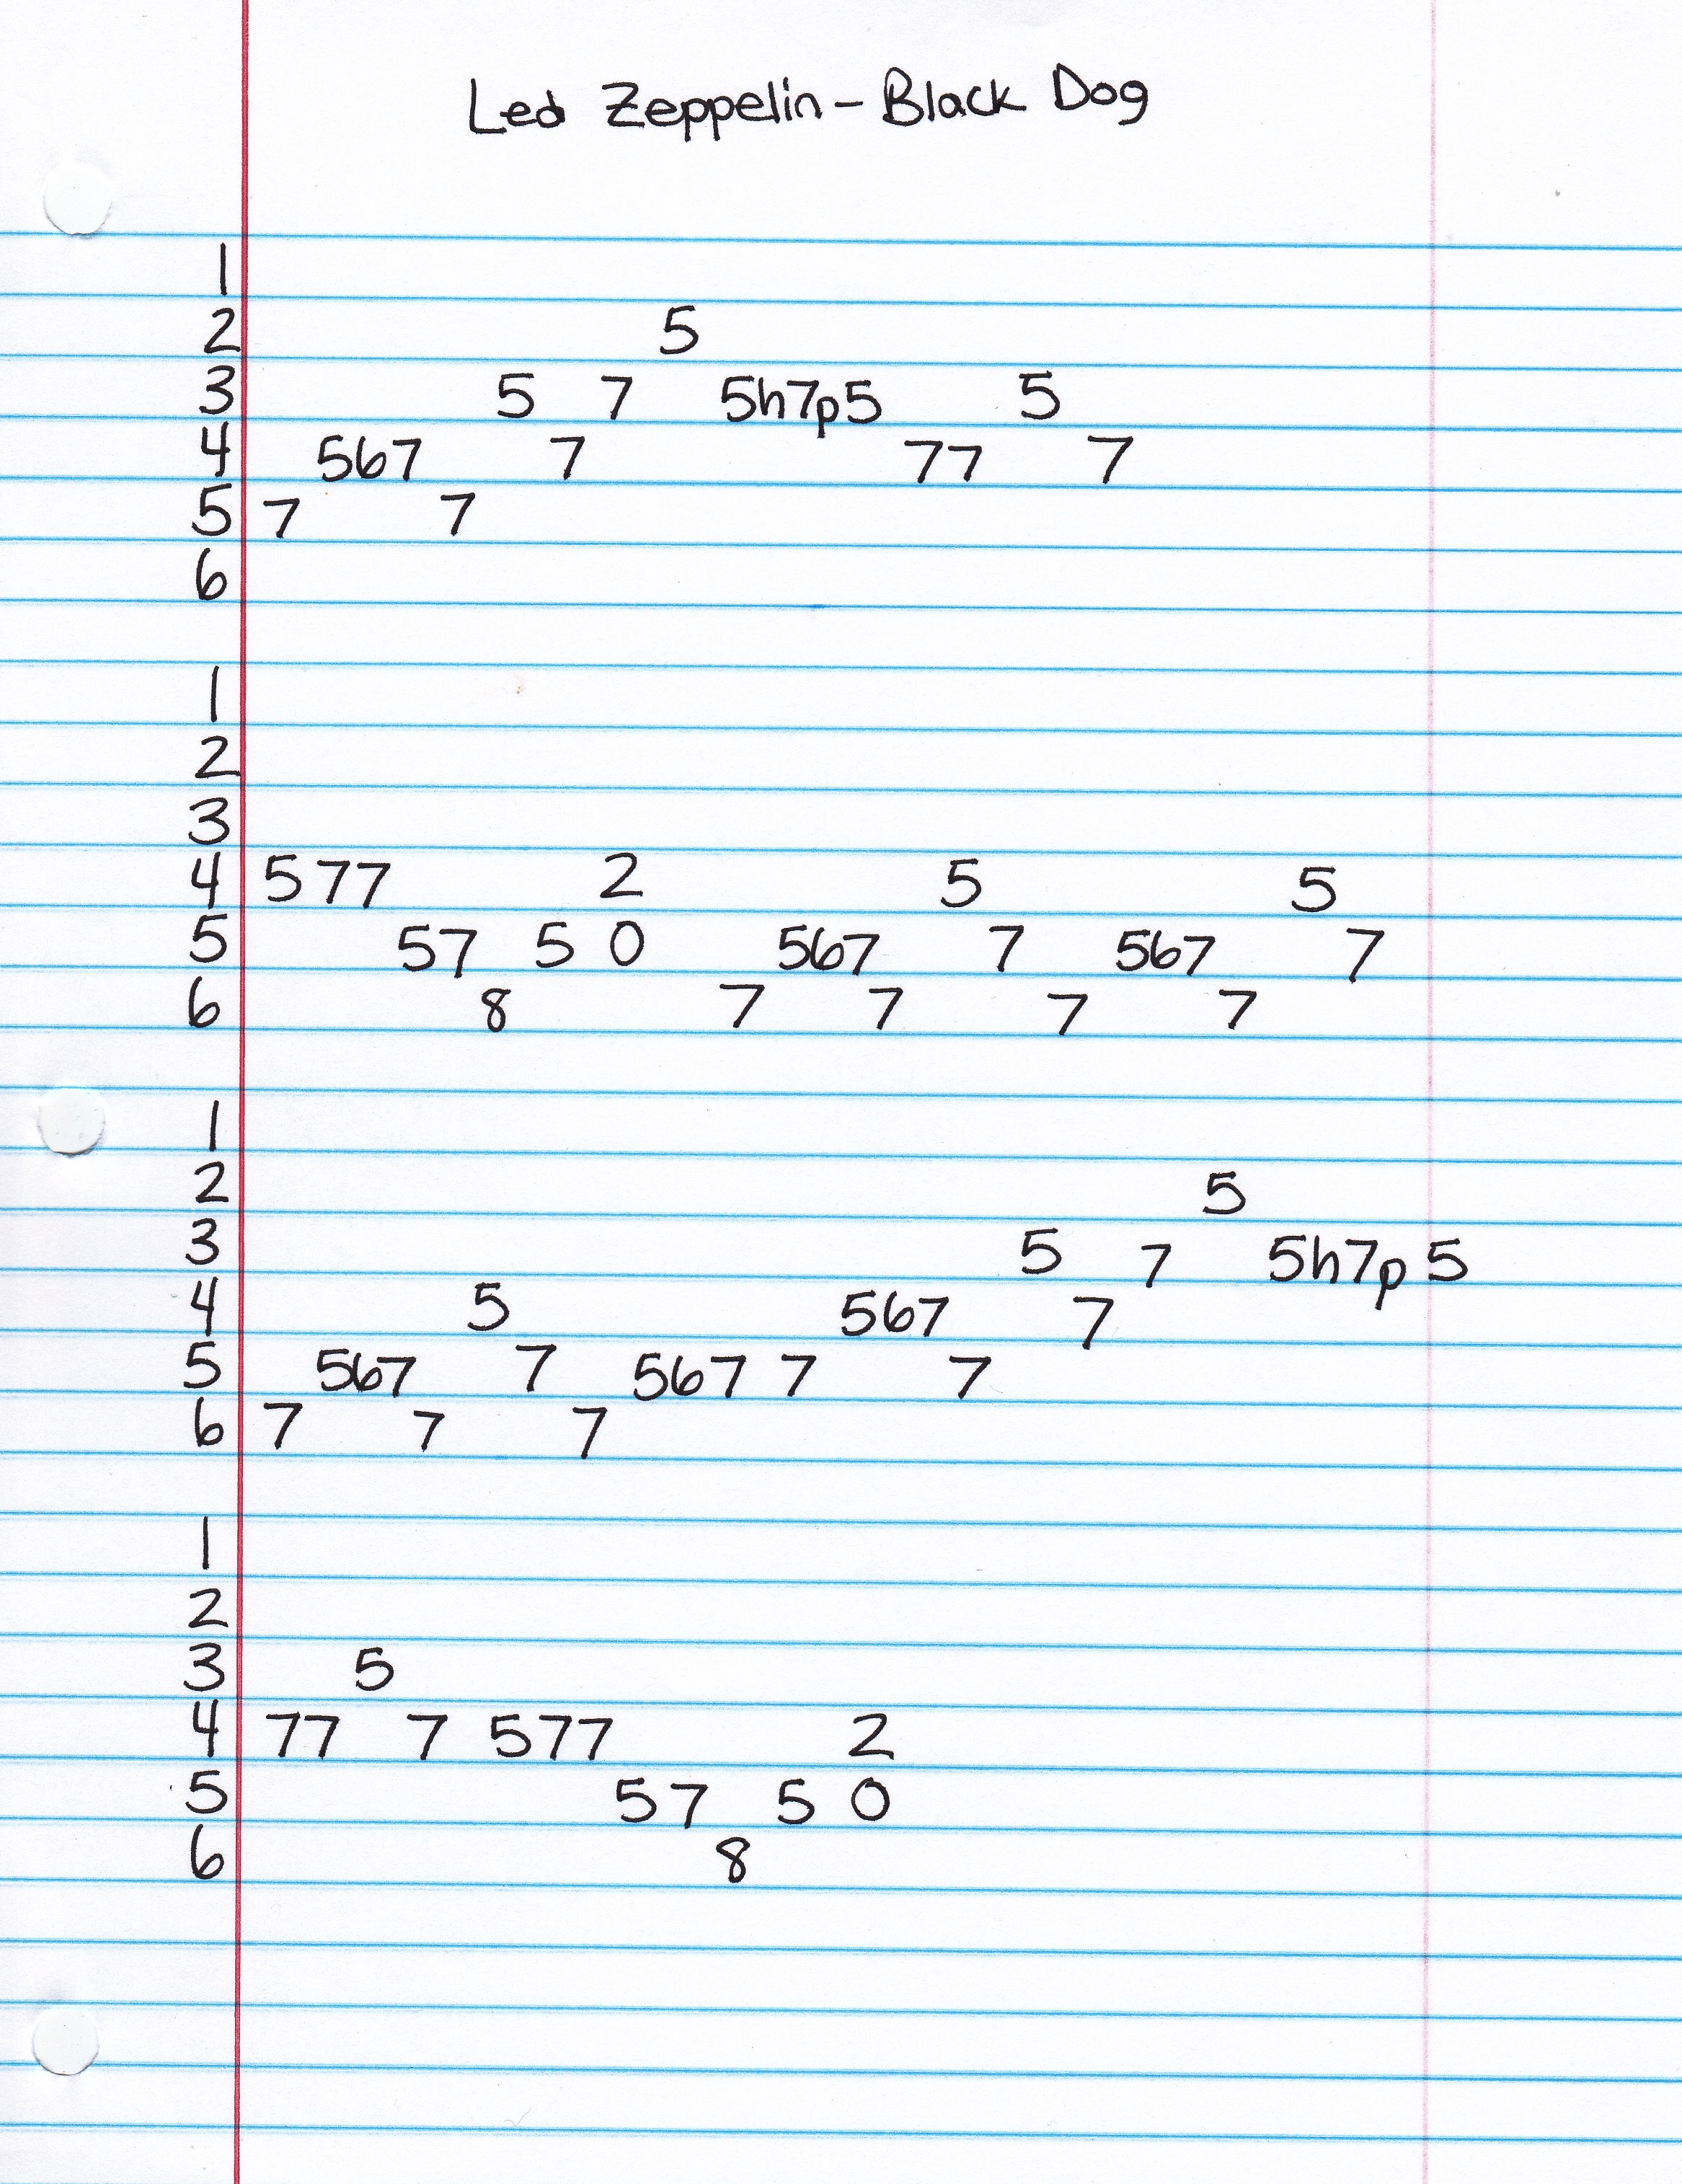 Led Zeppelin - Black Dog
1
2 5
3 5 7 5h7p5 5
4 567 7 77 7
5 7 7
6
1
2
3
4 577 2 5 5
5 57 5 0 567 7 567 7
6 8 7 7 7 7
1
2 5
3 5 7 5h7p5
4 5 567 7
5 567 7 567 7 7
6 7 7 7
1
2
3 5
4 77 7 577 2
5 57 5 0
6 8